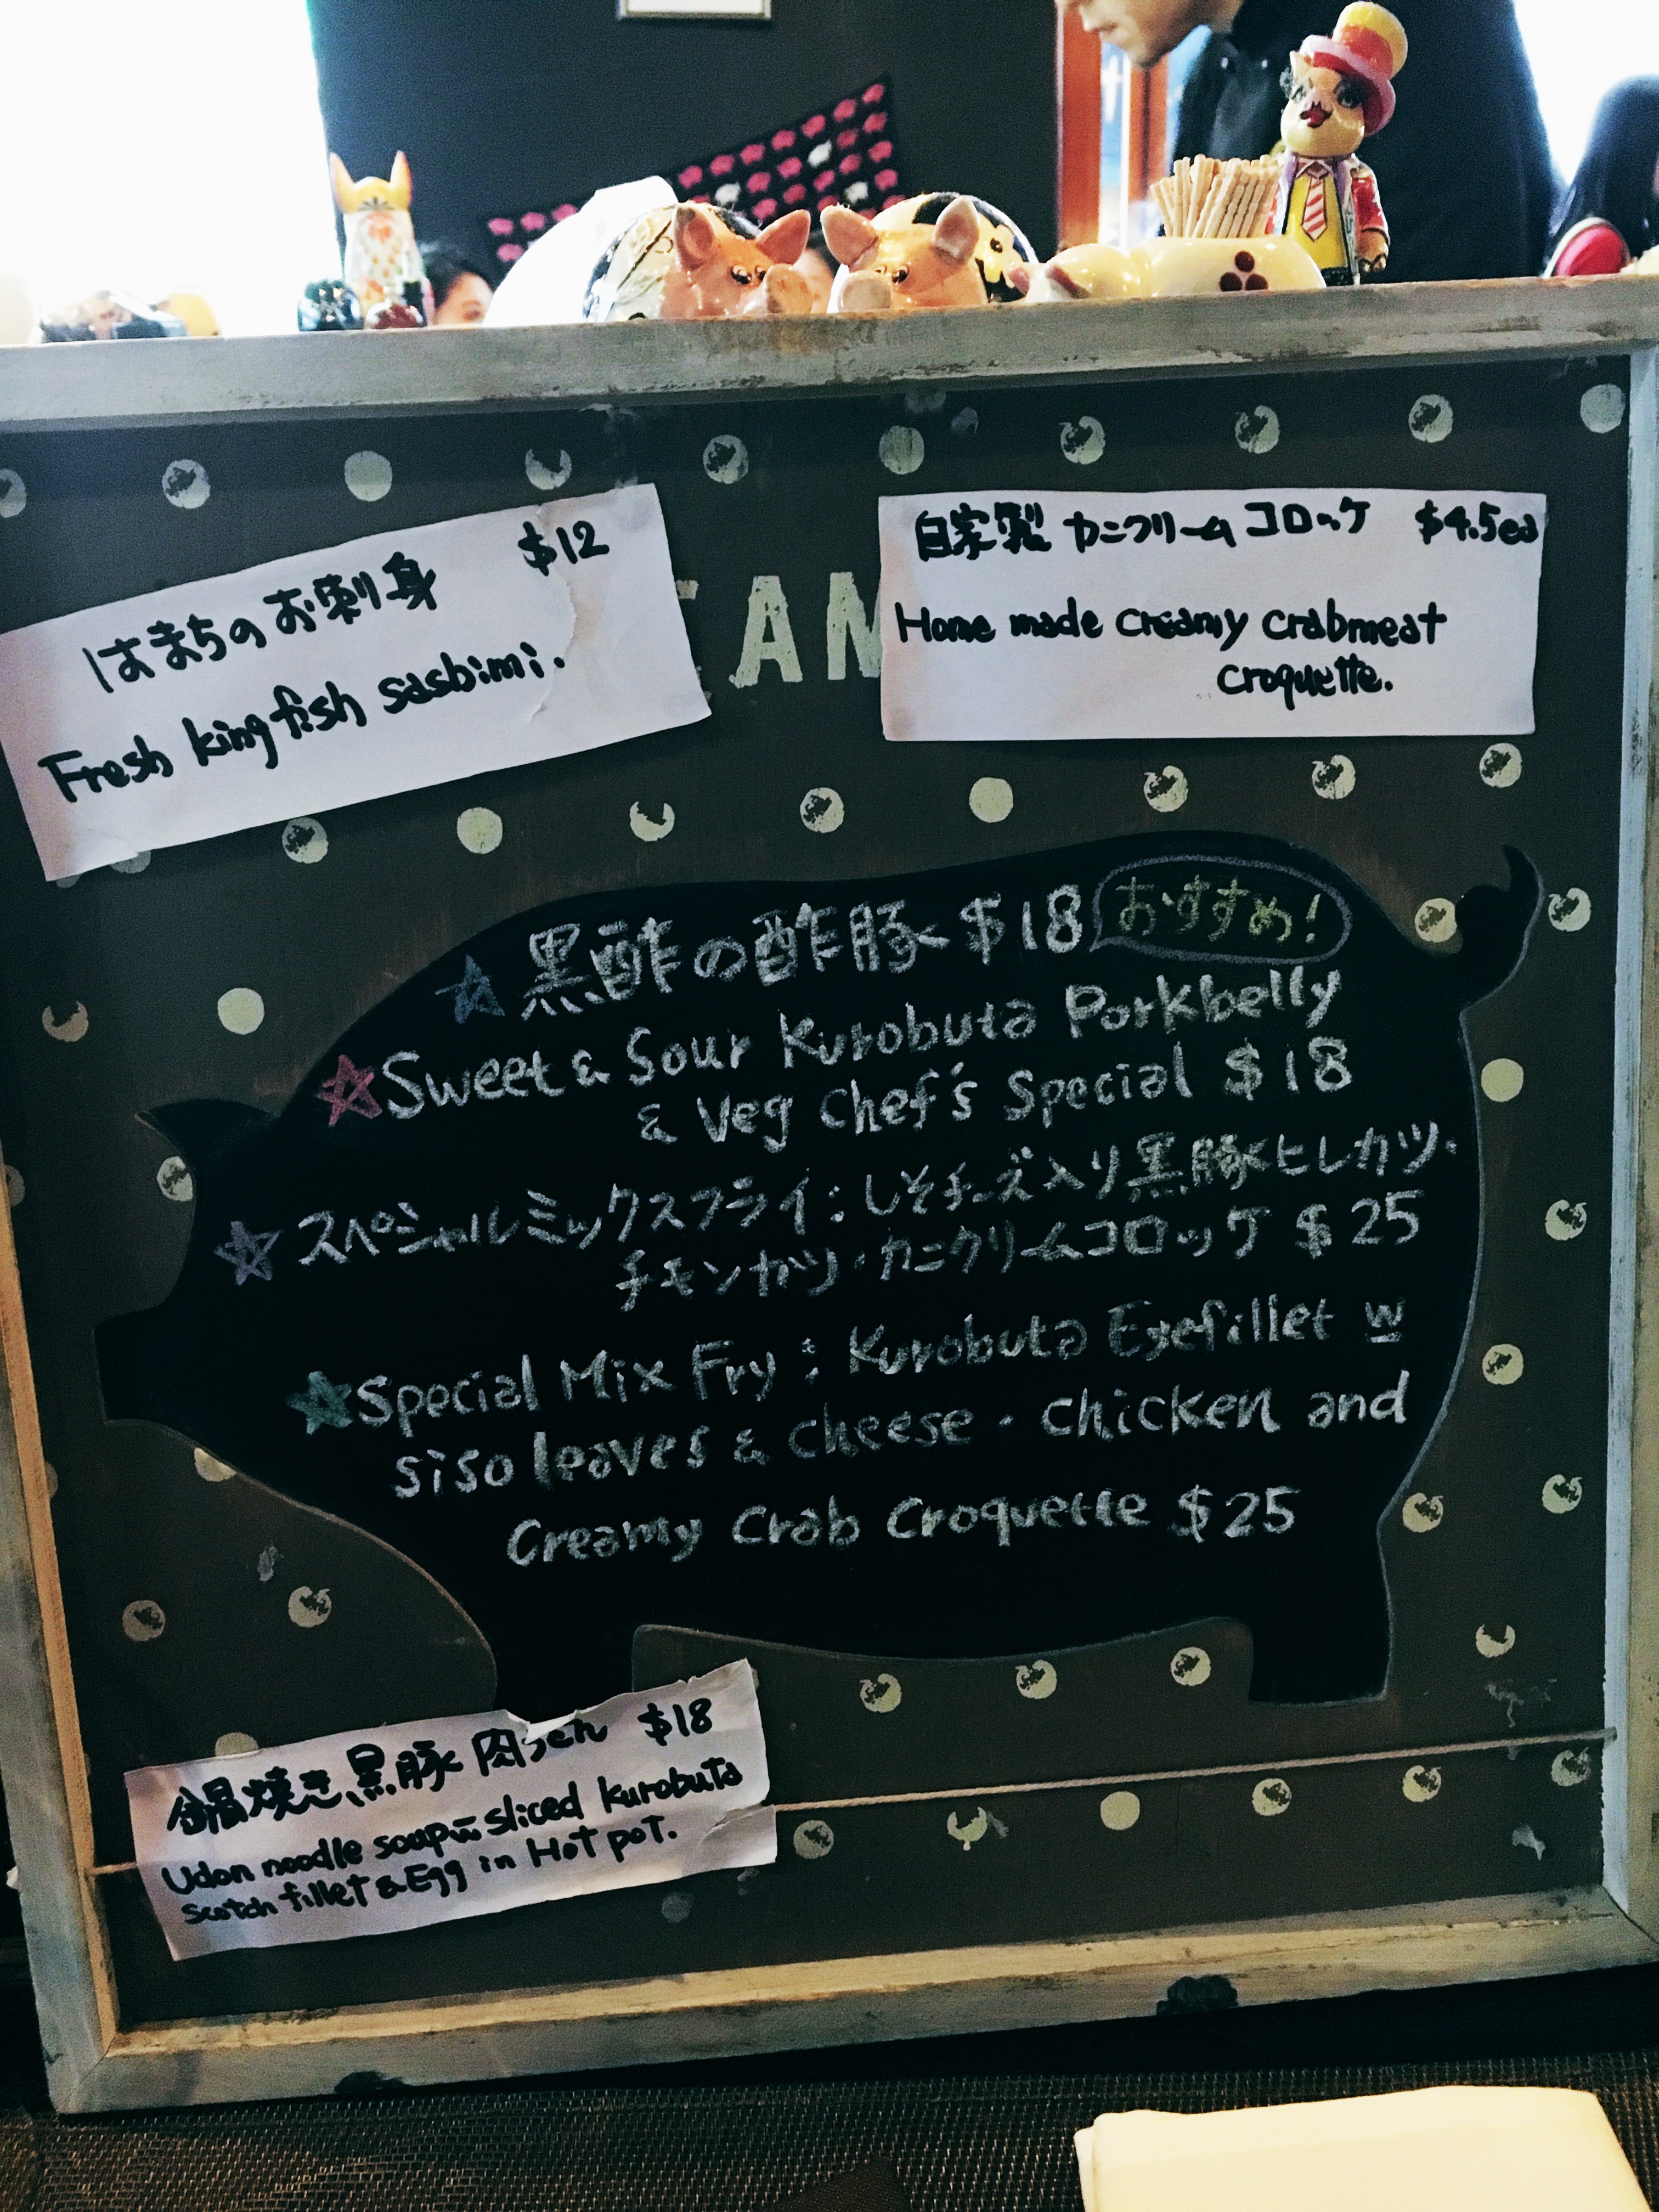 はまちのお刺身 $12
Fresh kingfish sasbimi.
自家製 カニクリームコロッケ $4.5ea
Home made creamy crabmeat
croquette.
黒酢の酢豚 $18 おすすめ!
Sweet & Sour Kurobuta Porkbelly
& Veg Chef's Special $18
スペシャルミックスフライ:しそチーズ入り黒豚ヒレカツ・
チキンカツ・カニクリームコロッケ $25
Special Mix Fry : Kurobuta Eyefillet w
siso leaves & cheese ・ chicken and
Creamy Crab Croquette $25
鍋焼き黒豚肉 $18
Udon noodle soup w sliced kurobuta
scotch fillet & Egg in Hot pot.